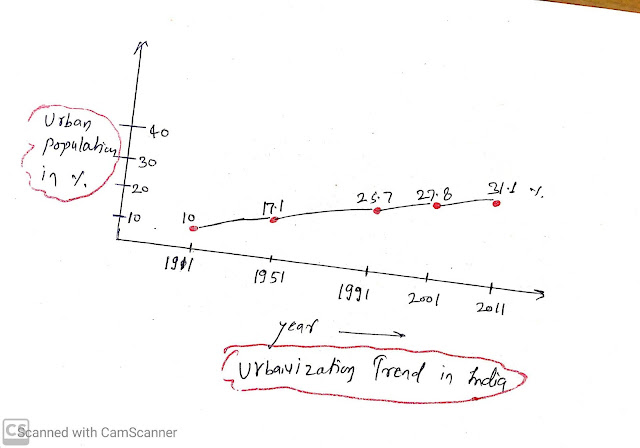 Urban
population
in %.
40
30
20
10
10
17.1
25.7
27.8
31.1 %.
1951
1991
2001
2011
year
Trend in India
CS
Scanned with CamScanner